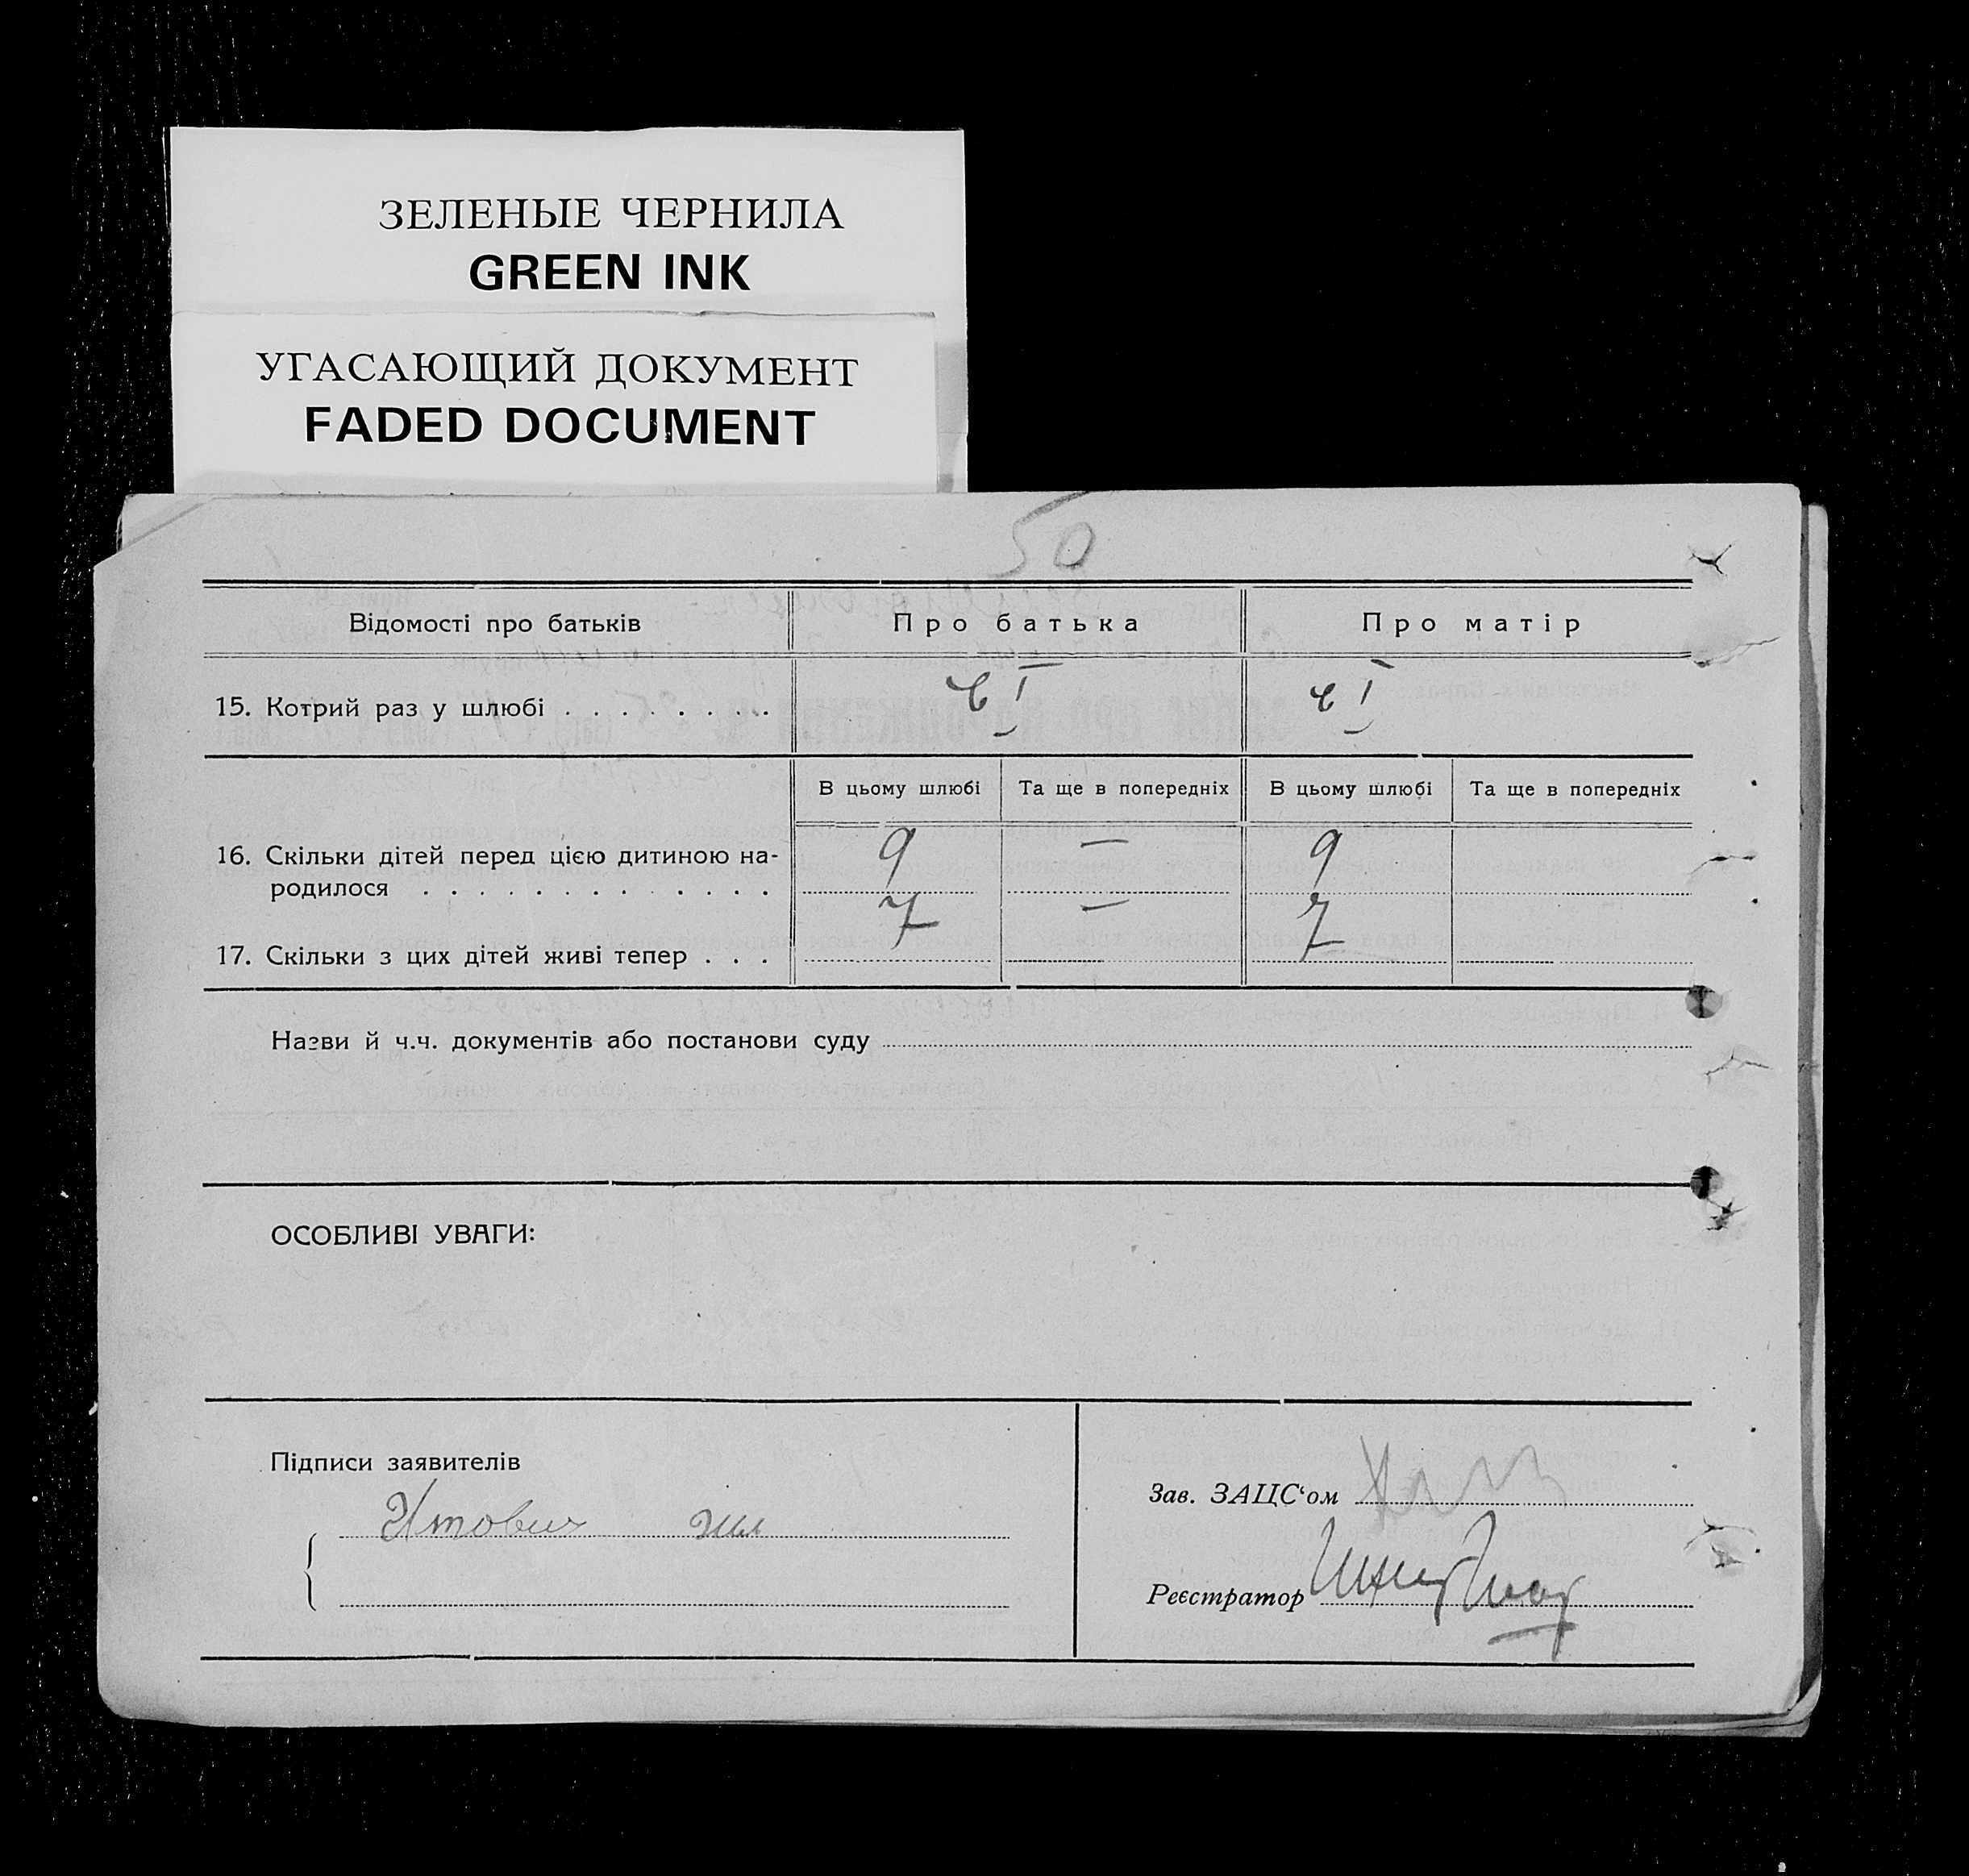 ЗЕЛЕНЫЕ ЧЕРНИЛА
GREEN INK
УГАСАЮЩИЙ ДОКУМЕНТ
FADED DOCUMENT
50
Відомості про батьків Про батька Про матір
15. Котрий раз у шлюбі . . . . . . . . I I
В цьому шлюбі Та ще в попередніх В цьому шлюбі Та ще в попередніх
16. Скільки дітей перед цією дитиною на-
родилося . . . . . . . . . . . . . 9 — 9
17. Скільки з цих дітей живі тепер . . . 7 — 7
Назви й ч.ч. документів або постанови суду
ОСОБЛИВІ УВАГИ:
Підписи заявителів
Зав. ЗАЦС‘ом
Реєстратор